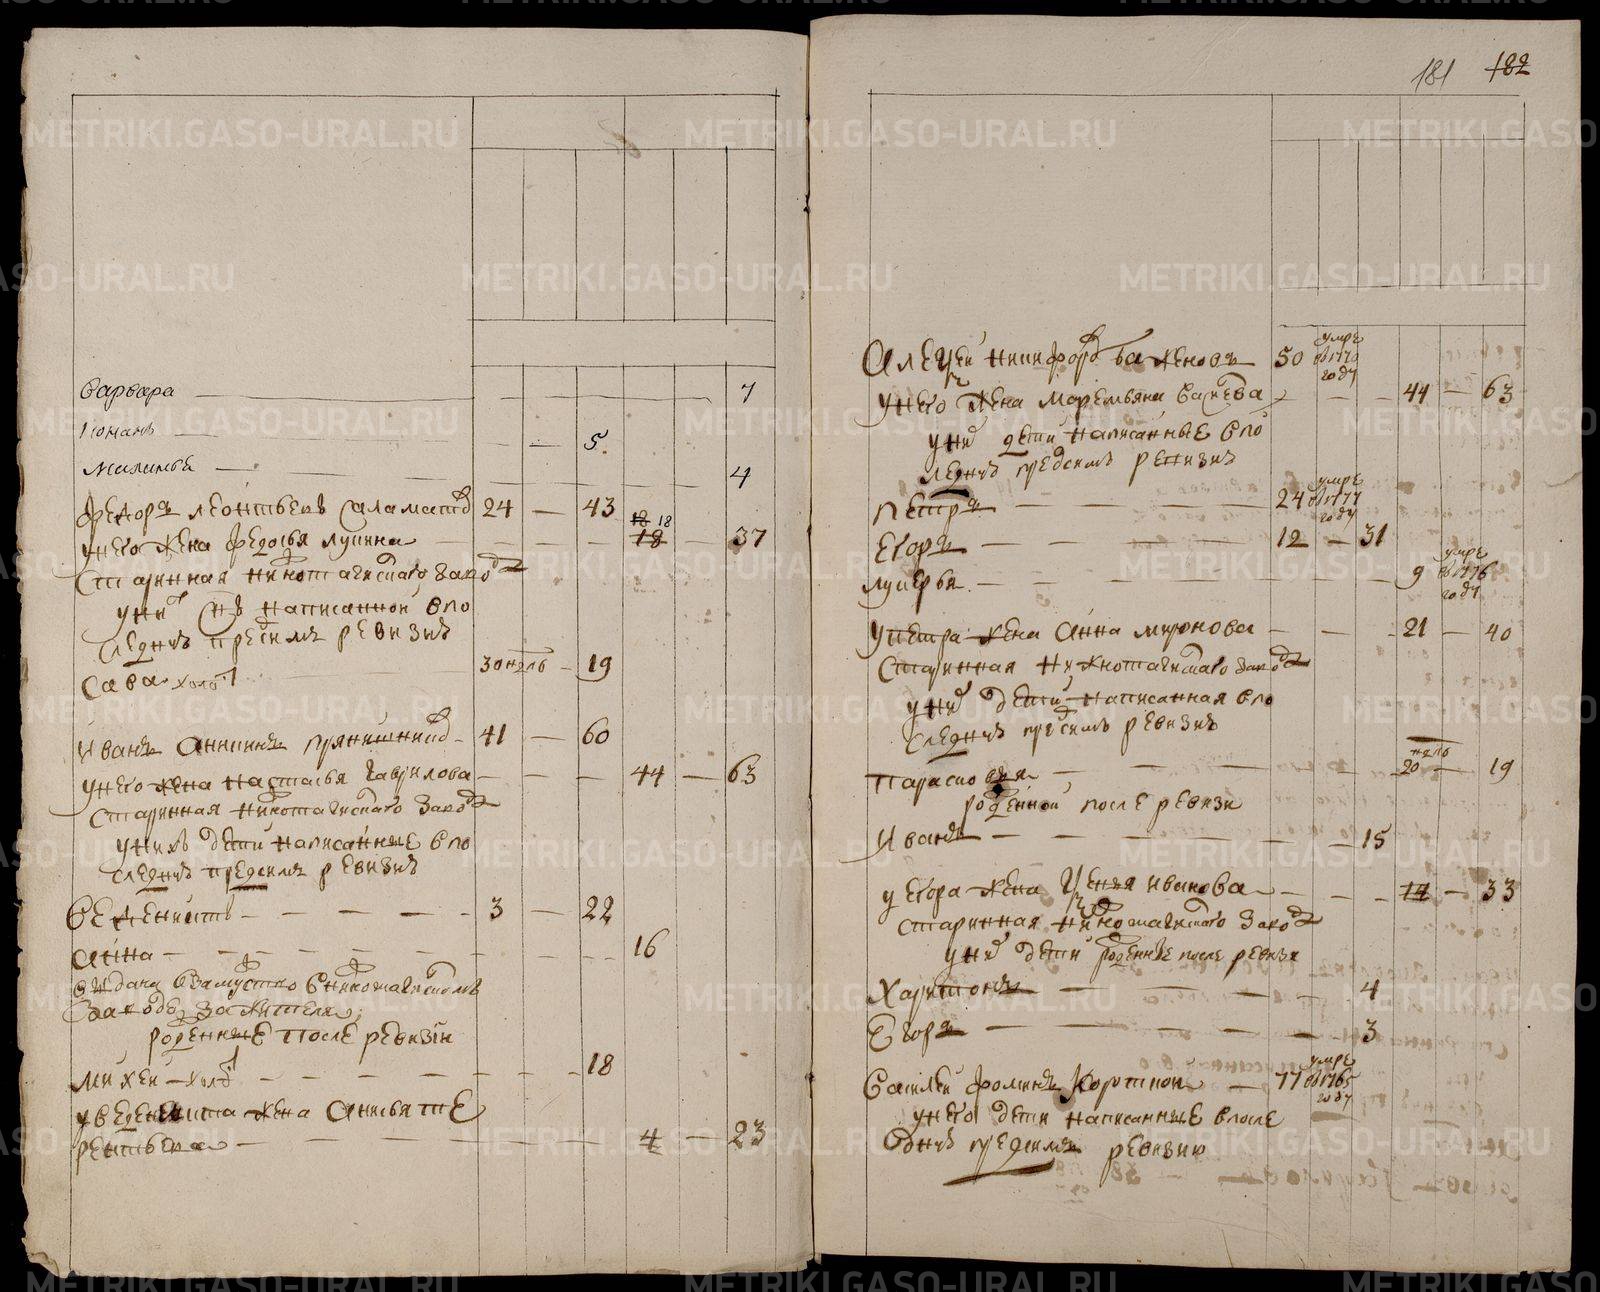 варвара — 7
романъ — 5
маланья — 4
Федоръ леонтьевъ Саламатов 24 — 43
18 18
у него жена федосья лукина — 18 — 37
старинная нижнотагилского завода
у них написанной в по
следнюю пред сим ревизию
Сава холост 30 нель — 19
Иванъ Аникинъ прянишников 41 — 60
у него жена настасья гаврилова — 44 — 63
старинная нижнотагилского завода
у них дети написанные в по
следнюю пред сим ревизию
Веденихтъ — 3 — 22
анна — 16
выдана в замуство в нижнотагилском
заводе за жителя
рожденные после ревизии
михей холост — 18
у веденихта жена Анисья те
рентьева — 4 — 23
181 182
Алексей никифоровъ баженовъ 50 умре в 1770 году
у него жена маремьяна Савева — 44 — 63
у них дети написанные в по
следнюю пред сим ревизию
петръ — 24 умре в 1777 году
Егоръ — 12 — 31
лукерья — 9 умре в 1776 году
у петра жена Анна миронова — 21 — 40
старинная нижнотагилского завода
у них дети написанная в по
следнюю пред сим ревизию
парасковья — 20 нель — 19
рожденной после ревизи
Иванъ — 15
у егора жена Ксенья иванова — 14 — 33
старинная нижнотагилского завода
у них дети рожденные после ревизи
Харитонъ — 4
Егоръ — 3
Василей фоминъ Коротков — 77 умре в 1765 году
у него дети написанные в после
днюю пред сим ревизию
METRIKI.GASO-URAL.RU